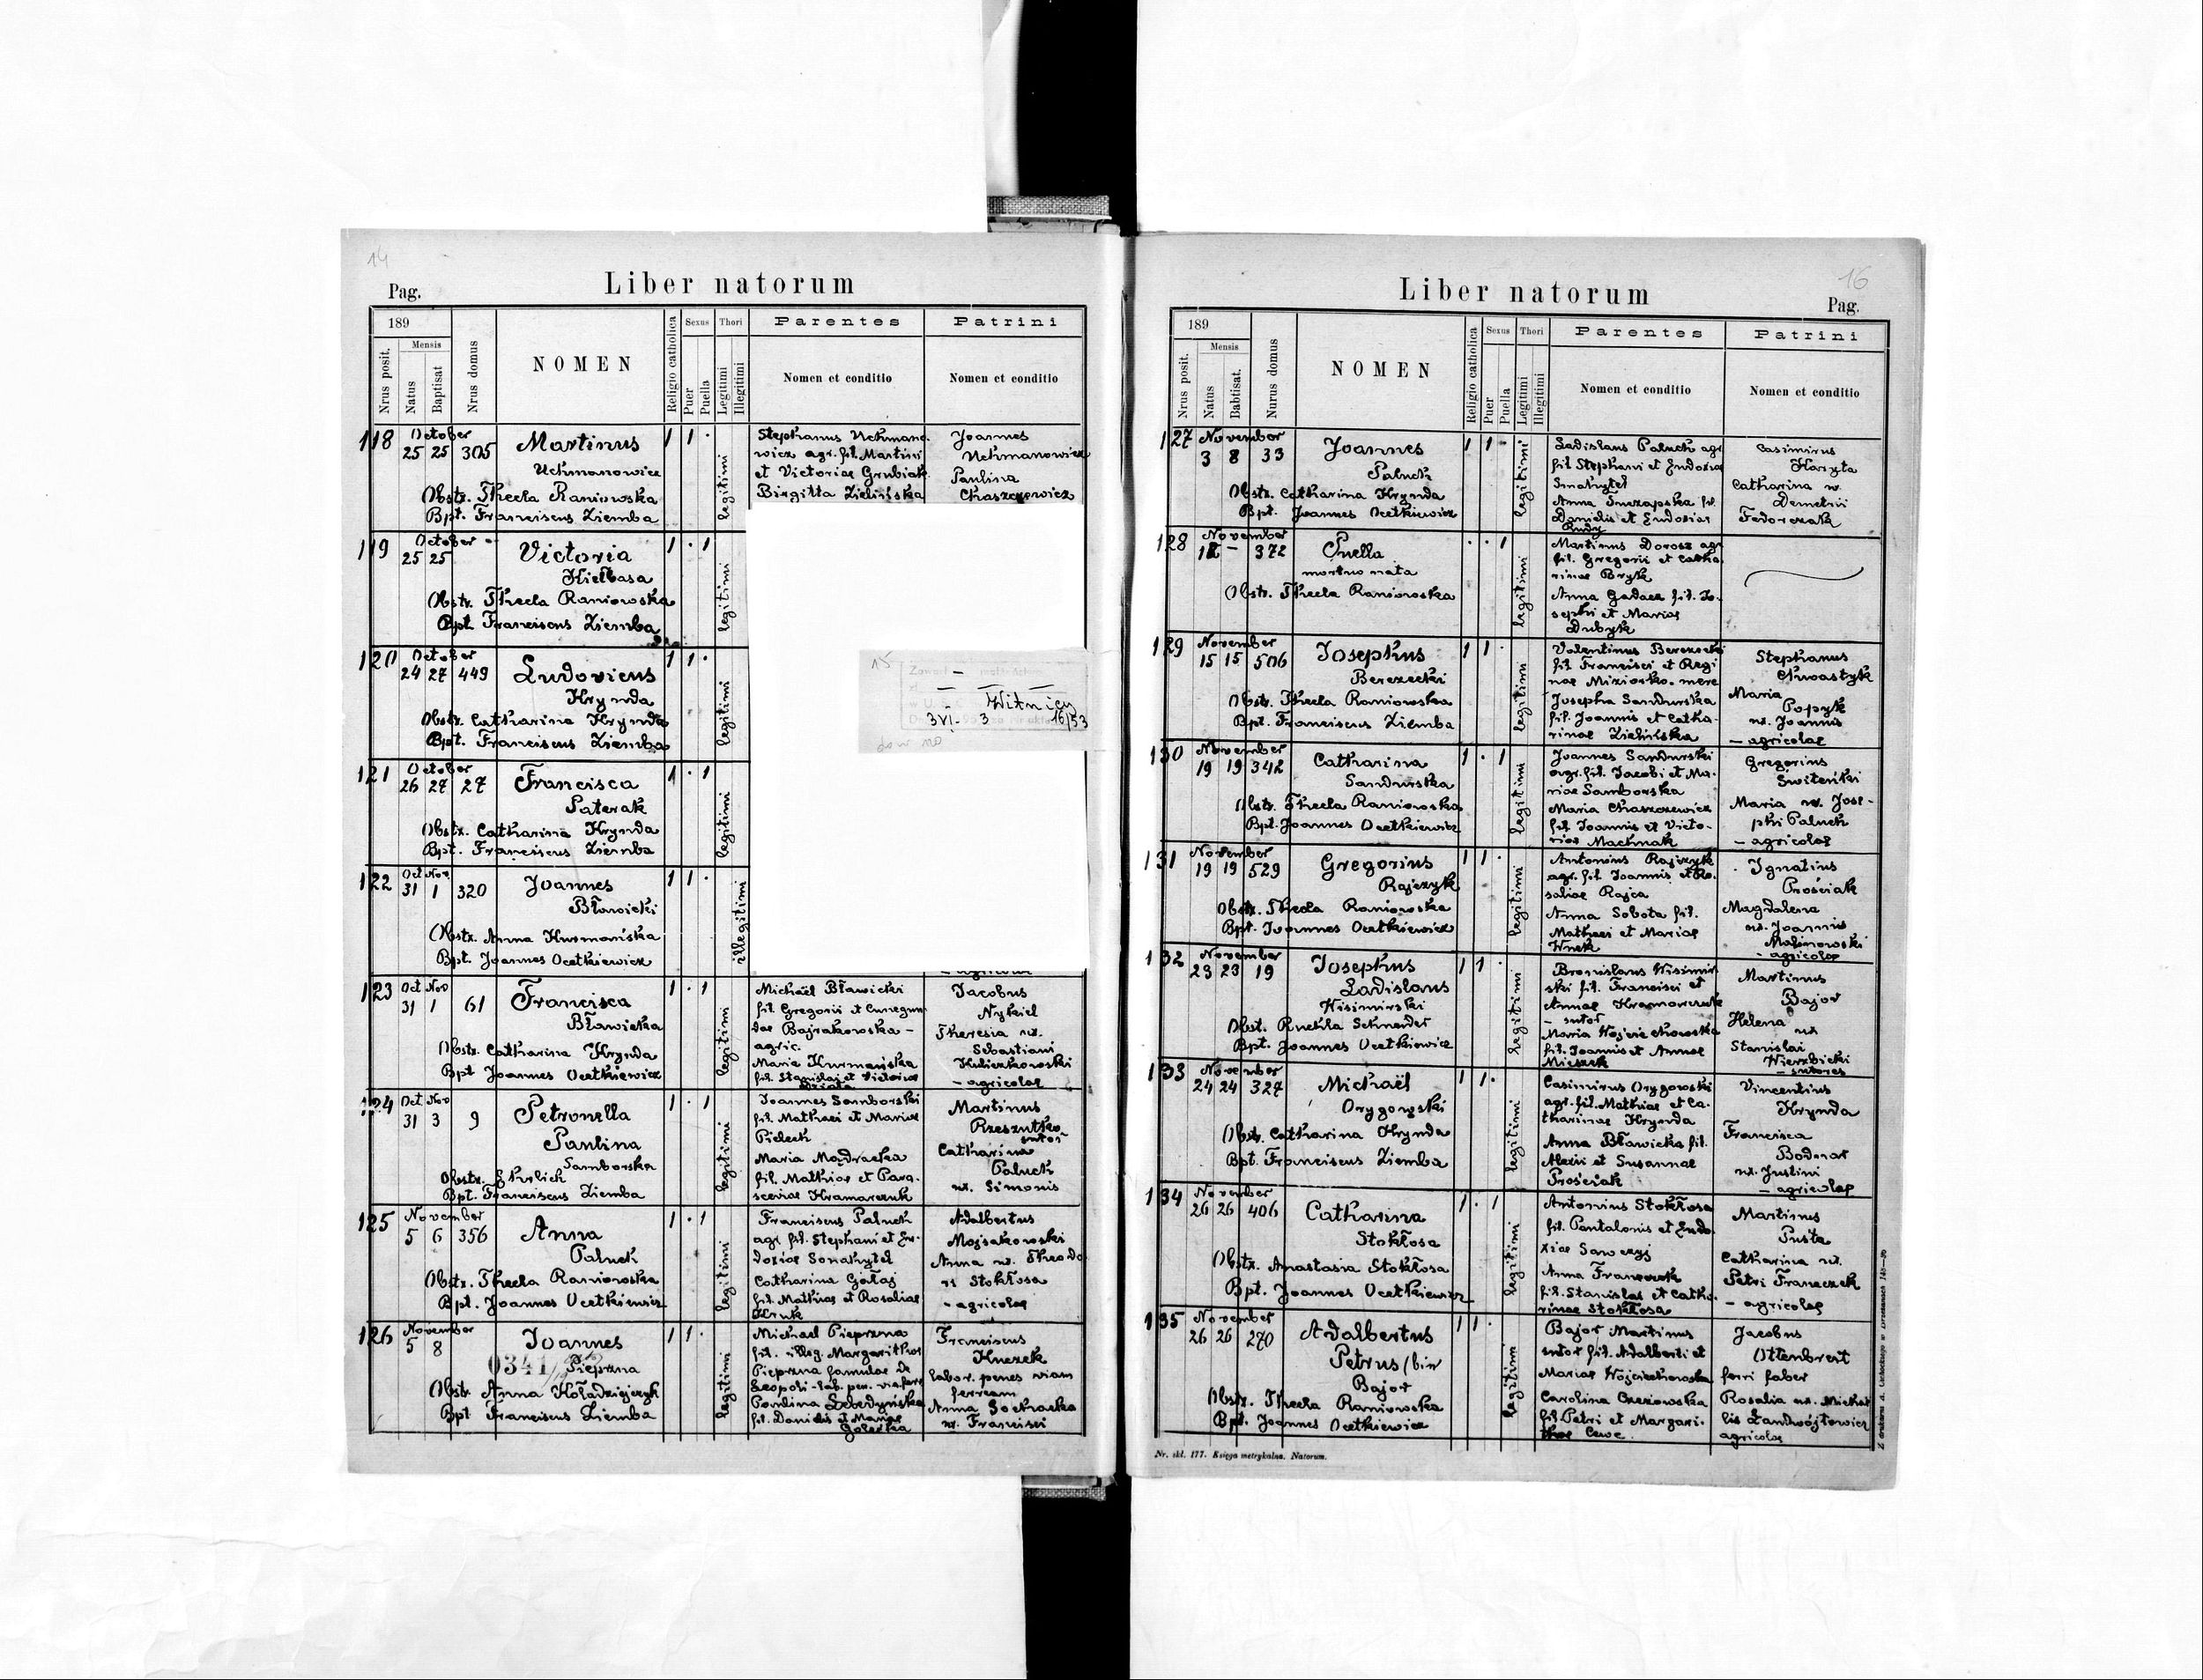 14
Pag.
Liber natorum
189
Nrus posit.
Mensis
Natus
Baptisat
Nrus domus
NOMEN
Religio catholica
Sexus
Puer
Puella
Thori
Legitimi
Illegitimi
Parentes
Nomen et conditio
Patrini
Nomen et conditio
118 October 25 25 305 Martinus 1 1 · legitimi
Uchmanowicz
Obstz. Thecla Raniowska
Bpt. Franciscus Ziemba
Stephanus Uchmano-
wicz agr. fil. Martini
et Victoriae Grubiak
Birgitta Zielińska
Joannes
Uchmanowicz
Paulina
Chaszczewicz
119 October 25 25 Victoria 1 · 1 legitimi
Kiełbasa
Obstz. Thecla Raniowska
Bpt. Franciscus Ziemba
120 October 24 27 449 Ludovicus 1 1 · legitimi
Hrynda
Obstz. Catharina Hrynda
Bpt. Franciscus Ziemba
121 October 26 27 27 Francisca 1 · 1 legitimi
Paterak
Obstz. Catharina Hrynda
Bpt. Franciscus Ziemba
122 Oct Nov. 31 1 320 Joannes 1 1 · illegitimi
Bławicki
Obstz. Anna Kurmańska
Bpt. Joannes Ocetkiewicz
15
Witnicy
3 VI- 3 16/53
123 Oct Nov 31 1 61 Francisca 1 · 1 legitimi
Bławicka
Obstz. Catharina Hrynda
Bpt Joannes Ocetkiewicz
Michaël Bławicki
fil. Gregorii et Cunegun
dae Bajrakowska –
agric.
Maria Kurmańska
fil. Stanislai et Victoriae
Jacobus
Nykiel
Theresia ux.
Sebastiani
Kuliczkowski
– agricolae
124 Oct Nov 31 3 9 Petronella 1 · 1 legitimi
Paulina
Samborska
Obstz. Ehrlich
Bpt. Franciscus Ziemba
Joannes Samborski
fil. Mathaei et Mariae
Pielech
Maria Mądracka
fil. Mathiae et Para-
sceviae Kramarczuk
Martinus
Rzeszutko
sutor
Catharina
Paluch
ux. Simonis
125 November 5 6 356 Anna 1 · 1 legitimi
Paluch
Obstz. Thecla Raniowska
Bpt. Joannes Ocetkiewicz
Franciscus Paluch
agr fil. Stephani et Eu-
doxiae Smakytel
Catharina Gałaj
fil. Mathiae et Rosaliae
Kruk
Adalbertus
Mojsakowski
Anna ux. Theodo
ri Stokłosa
– agricolae
126 November 5 8 Joannes 1 1 · legitimi
Pieprzna
Obstz Anna Kołodziejczyk
Bpt Franciscus Ziemba
Michael Pieprzna
fil. illeg. Margarithae
Pieprzna famulae de
Leopoli – lab. pen. via. ferr
Paulina
fil. Danielis et Mariae
Franciscus
Kuczek
labor. penes viam
ferream
Anna
ux. Francisci
16
Liber natorum
Pag.
189
Nrus posit.
Mensis
Natus
Babtisat.
Nurus domus
NOMEN
Religio catholica
Sexus
Puer
Puella
Thori
Legitimi
Illegitimi
Parentes
Nomen et conditio
Patrini
Nomen et conditio
127 November 3 8 33 Joannes 1 1 · legitimi
Paluch
Obstz. Catharina Hrynda
Bpt. Joannes Ocetkiewicz
Ladislaus Paluch agr
fil Stephani et Eudoxiae
Smakytel
Anna fil.
Danielis et Eudoxiae
Rudy
Casimirus
Haryta
Catharina ux.
Demetrii
Fedorczak
128 November – 372 Puella · · 1 legitimi
mortuo nata
Obstz. Thecla Raniowska
Martinus Dorosz agr
fil. Gregorii et Catha-
rinae Bryk
Anna Gadacz fil. Jo-
sephi et Mariae
Dubyk
129 November 15 15 506 Josephus 1 1 · legitimi
Berezecki
Obstz. Thecla Raniowska
Bpt. Franciscus Ziemba
Valentinus Berezecki
fil Francisci et Regi
nae Miziorko. merc
Josepha Sandurska
fil. Joannis et Catha-
rinae Zielińska
Stephanus
Chwastyk
Maria
Popyk
ux. Joannis
– agricolae
130 November 19 19 342 Catharina 1 · 1 legitimi
Sandurska
Obstz. Thecla Raniowska
Bpt. Joannes Ocetkiewicz
Joannes Sandurski
agr. fil. Jacobi et Ma-
riae Samborska
Maria Chaszczewicz
fil Joannis et Victo-
riae Machnak
Gregorius
Switeńki
Maria ux. Jose-
phi Paluch
– agricolae
131 November 19 19 529 Gregorius 1 1 · legitimi
Rajczyk
Obstz. Thecla Raniowska
Bpt. Joannes Ocetkiewicz
Antonius Rajczyk
agr. fil Joannis et Ro-
saliae Rajca
Anna Sobota fil.
Mathaei et Mariae
Wnek
Ignatius
Prościak
Magdalena
ux. Joannis
Malinowski
– agricolae
132 November 23 23 19 Josephus 1 1 · legitimi
Ladislaus
Wisimirski
Obst. Ruchla Schneider
Bpt. Joannes Ocetkiewicz
Bronislaus Wisimir
ski fil. Francisci et
Annae Kramarczuk
– sutor
Maria Wojciechowska
fil. Joannis et Annae
Mieszek
Martinus
Bajor
Helena
ux
Stanislai
Wierzbicki
sutores
133 November 24 24 327 Michaël 1 1 · legitimi
Drygowski
Obstz. Catharina Hrynda
Bpt. Franciscus Ziemba
Casimirus Drygowski
agr. fil. Mathiae et Ca-
tharinae Hrynda
Anna Bławicka fil.
Alexii et Susannae
Prościak
Vincentius
Hrynda
Francisca
Bodnar
ux. Justini
– agricolae
134 November 26 26 406 Catharina 1 · 1 legitimi
Stokłosa
Obstz. Anastasia Stokłosa
Bpt. Joannes Ocetkiewicz
Antonius Stokłosa
fil. Pantalonis et Eudo-
xiae
Anna Franczuk
fil. Stanislai et Catha-
rinae Stokłosa
Martinus
Pusta
Catharina ux.
Petri Franczek
– agricolae
135 November 26 26 270 Adalbertus 1 1 · legitimi
Petrus (bin
Bajor
Obstz. Thecla Raniowska
Bpt. Joannes Ocetkiewicz
Bajor Martinus
sutor fil. Adalberti et
Mariae Wojciechowska
Carolina
fil. Petri et Margari-
thae
Jacobus
Ottenbreit
ferri faber
Rosalia ux. Michae
lis Landwójtowicz
agricolae
Nr. skl. 177. Księga metrykalna. Natorum.